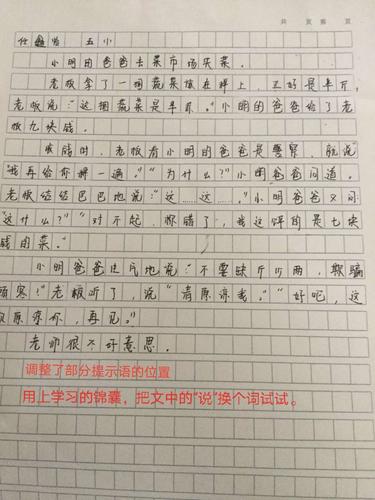 共 页 第 页
五小
小明的爸爸去菜市场买菜。
老板拿了一捆蔬菜放在秤上，正好是半斤，
老板说：“这捆蔬菜是半斤。”小明的爸爸给了老
板九块钱。
找钱时，老板看小明的爸爸是警察，就说
“我再给你称一遍。”“为什么？”爸爸问道。
老板结结巴巴地说：“这……这……。”小明爸爸又问
“这什么？”“对不起，你错了，我这得的是七块
钱的菜。”
小明爸爸生气地说：“不要缺斤少两，欺骗
顾客！”老板听了，说“请原谅我。”“好吧，这
次原谅你，再见。”
老师很不好意思。
调整了部分提示语的位置
用上学习的锦囊，把文中的“说”换个词试试。